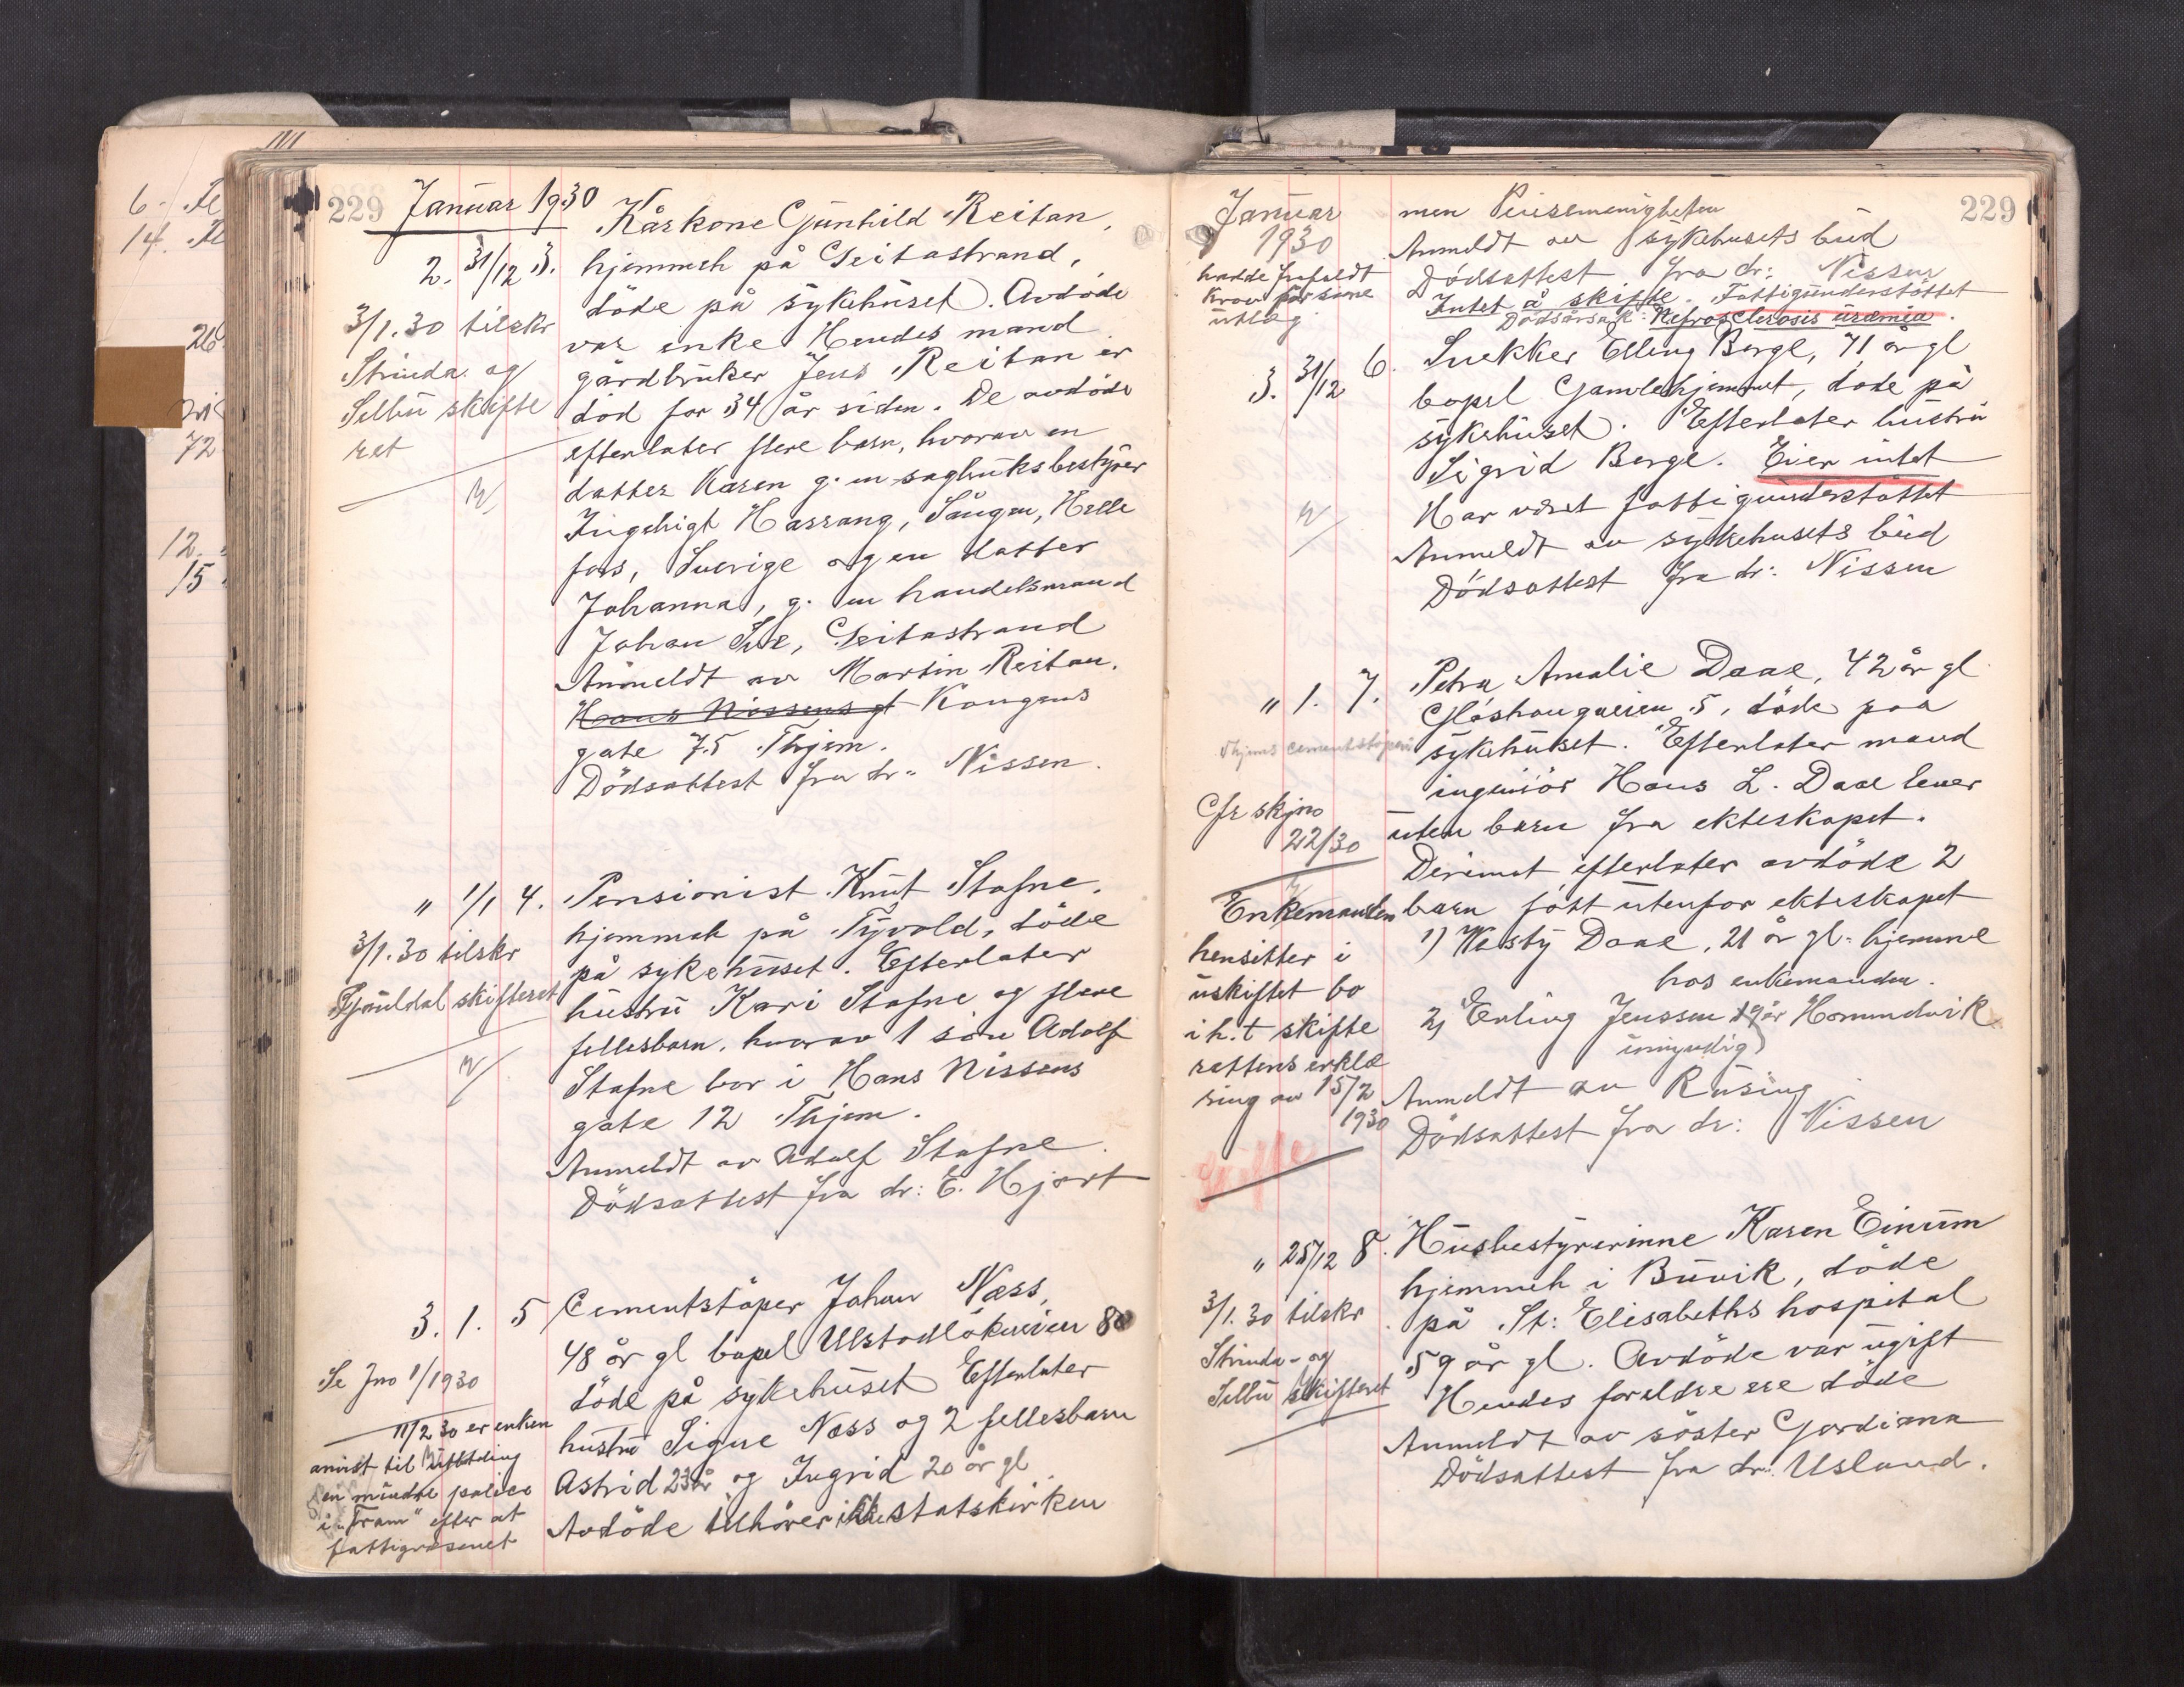 229 Januar 1930
Kårkone Gunhild Reitan,
2. 31/12 3. hjemmeh på Seitastrand,
døde på sykehuset. Avdøde
3/1.30 tilskr
var enke Hendes mand
Strinda og
gårdbruker Jens Reitan er
Selbu skifte
død for 34 år siden. De avdøde
ret
efterlater flere barn, hvorav en
datter Karen g. m sagbruksbestyrer
Ingebrigt Hassang,
fors, Sverige og en datter
Johanna, g. m handelsmand
Johan Sve, Seitastrand
Anmeldt av Martin Reitan.
Hans Nissens gt Kongens
gate 75 Thjem.
Dödsattest fra dr. Nissen.
" 1/1 4. Pensionist Knut Stafne,
hjemmeh på Tyvold, döde
3/1.30 tilskr
på sykehuset. Efterlater
Gauldal skifteret
hustru Kari Stafne og flere
fellesbarn, hvorav 1 sön Adolf
Stafne bor i Hans Nissens
gate 12 Thjem.
Anmeldt av Adolf Stafne.
Dödsattest fra dr: E. Hjort
3. 1. 5 Cementstöper Johan Næss,
48 år gl bopel Ulstadlökveien 8
Se Jno 1/1930
döde på sykehuset Efterlater
11/2 30 er enken
hustru Signe Næss og 2 fellesbarn
anvist til utbetaling
Astrid 23 år og Ingrid 20 år gl
en mindre police
i "Fram" efter at
Avdöde tilhörer ikke statskirken
fattigvæsenet
Januar 1930
229
men Pinsemenigheten
Anmeldt av sykehusets bud
hadde frafaldt
krav for sine
utlæg
Dödsattest fra dr: Nissen
Intet å skifte. Fattigunderstöttet
Dödsårsak: Nefrosclerosis uræmia.
3. 31/12 6. Snekker Elling Berge, 71 år gl
bopel Gamlehjemmet, döde på
sykehuset. Efterlater hustru
Sigrid Berge. Eier intet
Har været fattigunderstöttet
Anmeldt av sykehusets bud
Dödsattest fra dr: Nissen
" 1. 7. Petra Amalie Daae, 42 år gl
Glöshaugveien 5, döde paa
Thjems cementstöperi
sykehuset. Efterlater mand
ingeniör Hans L. Daae lever
Cfr skjno
22/30
uten barn fra ekteskapet.
Derimot efterlater avdöde 2
Enkemanden
barn född utenfor ekteskapet
hensitter i
1) Westy Daae, 21 år gl. hjemme
uskiftet bo
hos enkemanden.
i h.t skifte
2) Erling Jenssen 19 år Hommelvik
rettens erklæ
umyndig
ring av 15/2
1930
Anmeldt av Rusing
Dödsattest fra dr: Nissen
Skifte
" 25/12 8. Husbestyrerinne Karen Einum
hjemmeh i Buvik, döde
3/1.30 tilskr
på St: Elisabeths hospital
Strinda- og
59 år gl. Avdöde var ugift
Selbu skifteret
Hendes foreldre ere döde
Anmeldt av söster Gordiana
Dödsattest fra dr: Usland.